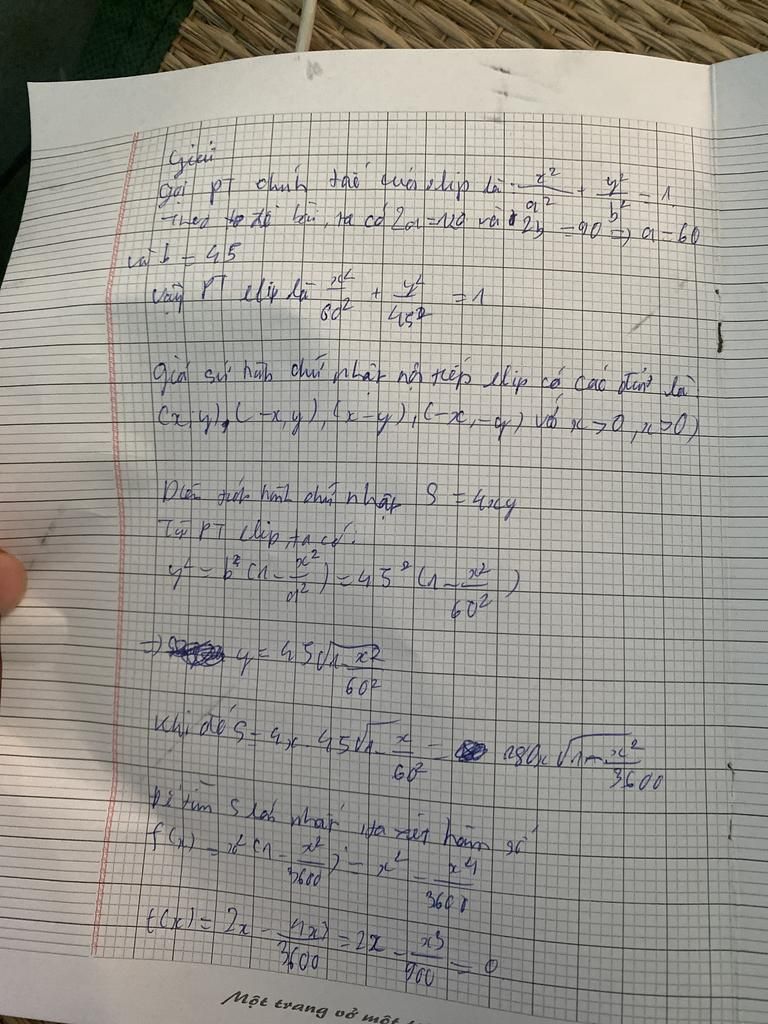 Giải
Gọi PT chính tắc của elip là x²/a² + y²/b² = 1
Theo đề bài, ta có 2a = 120 và 2b = 90 => a = 60
và b = 45
Vậy PT elip là x²/60² + y²/45² = 1
Giả sử hình chữ nhật nội tiếp elip có các đỉnh là
(x,y), (-x,y), (x-y), (-x,-y) với x>0, x>0)
Diện tích hình chữ nhật S = 4xy
Từ PT elip ta có:
y² = b²(1 - x²/a²) = 45²(1 - x²/60²)
=> y = 45√1 - x²/60²
Khi đó S = 4x . 45√1 - x/60² = 180x √1 - x²/3600
Để tìm S lớn nhất ta xét hàm số
f(x) = x²(1 - x²/3600) = x² - x⁴/3600
f'(x) = 2x - 4x³/3600 = 2x - x³/900 = 0
Một trang vở một